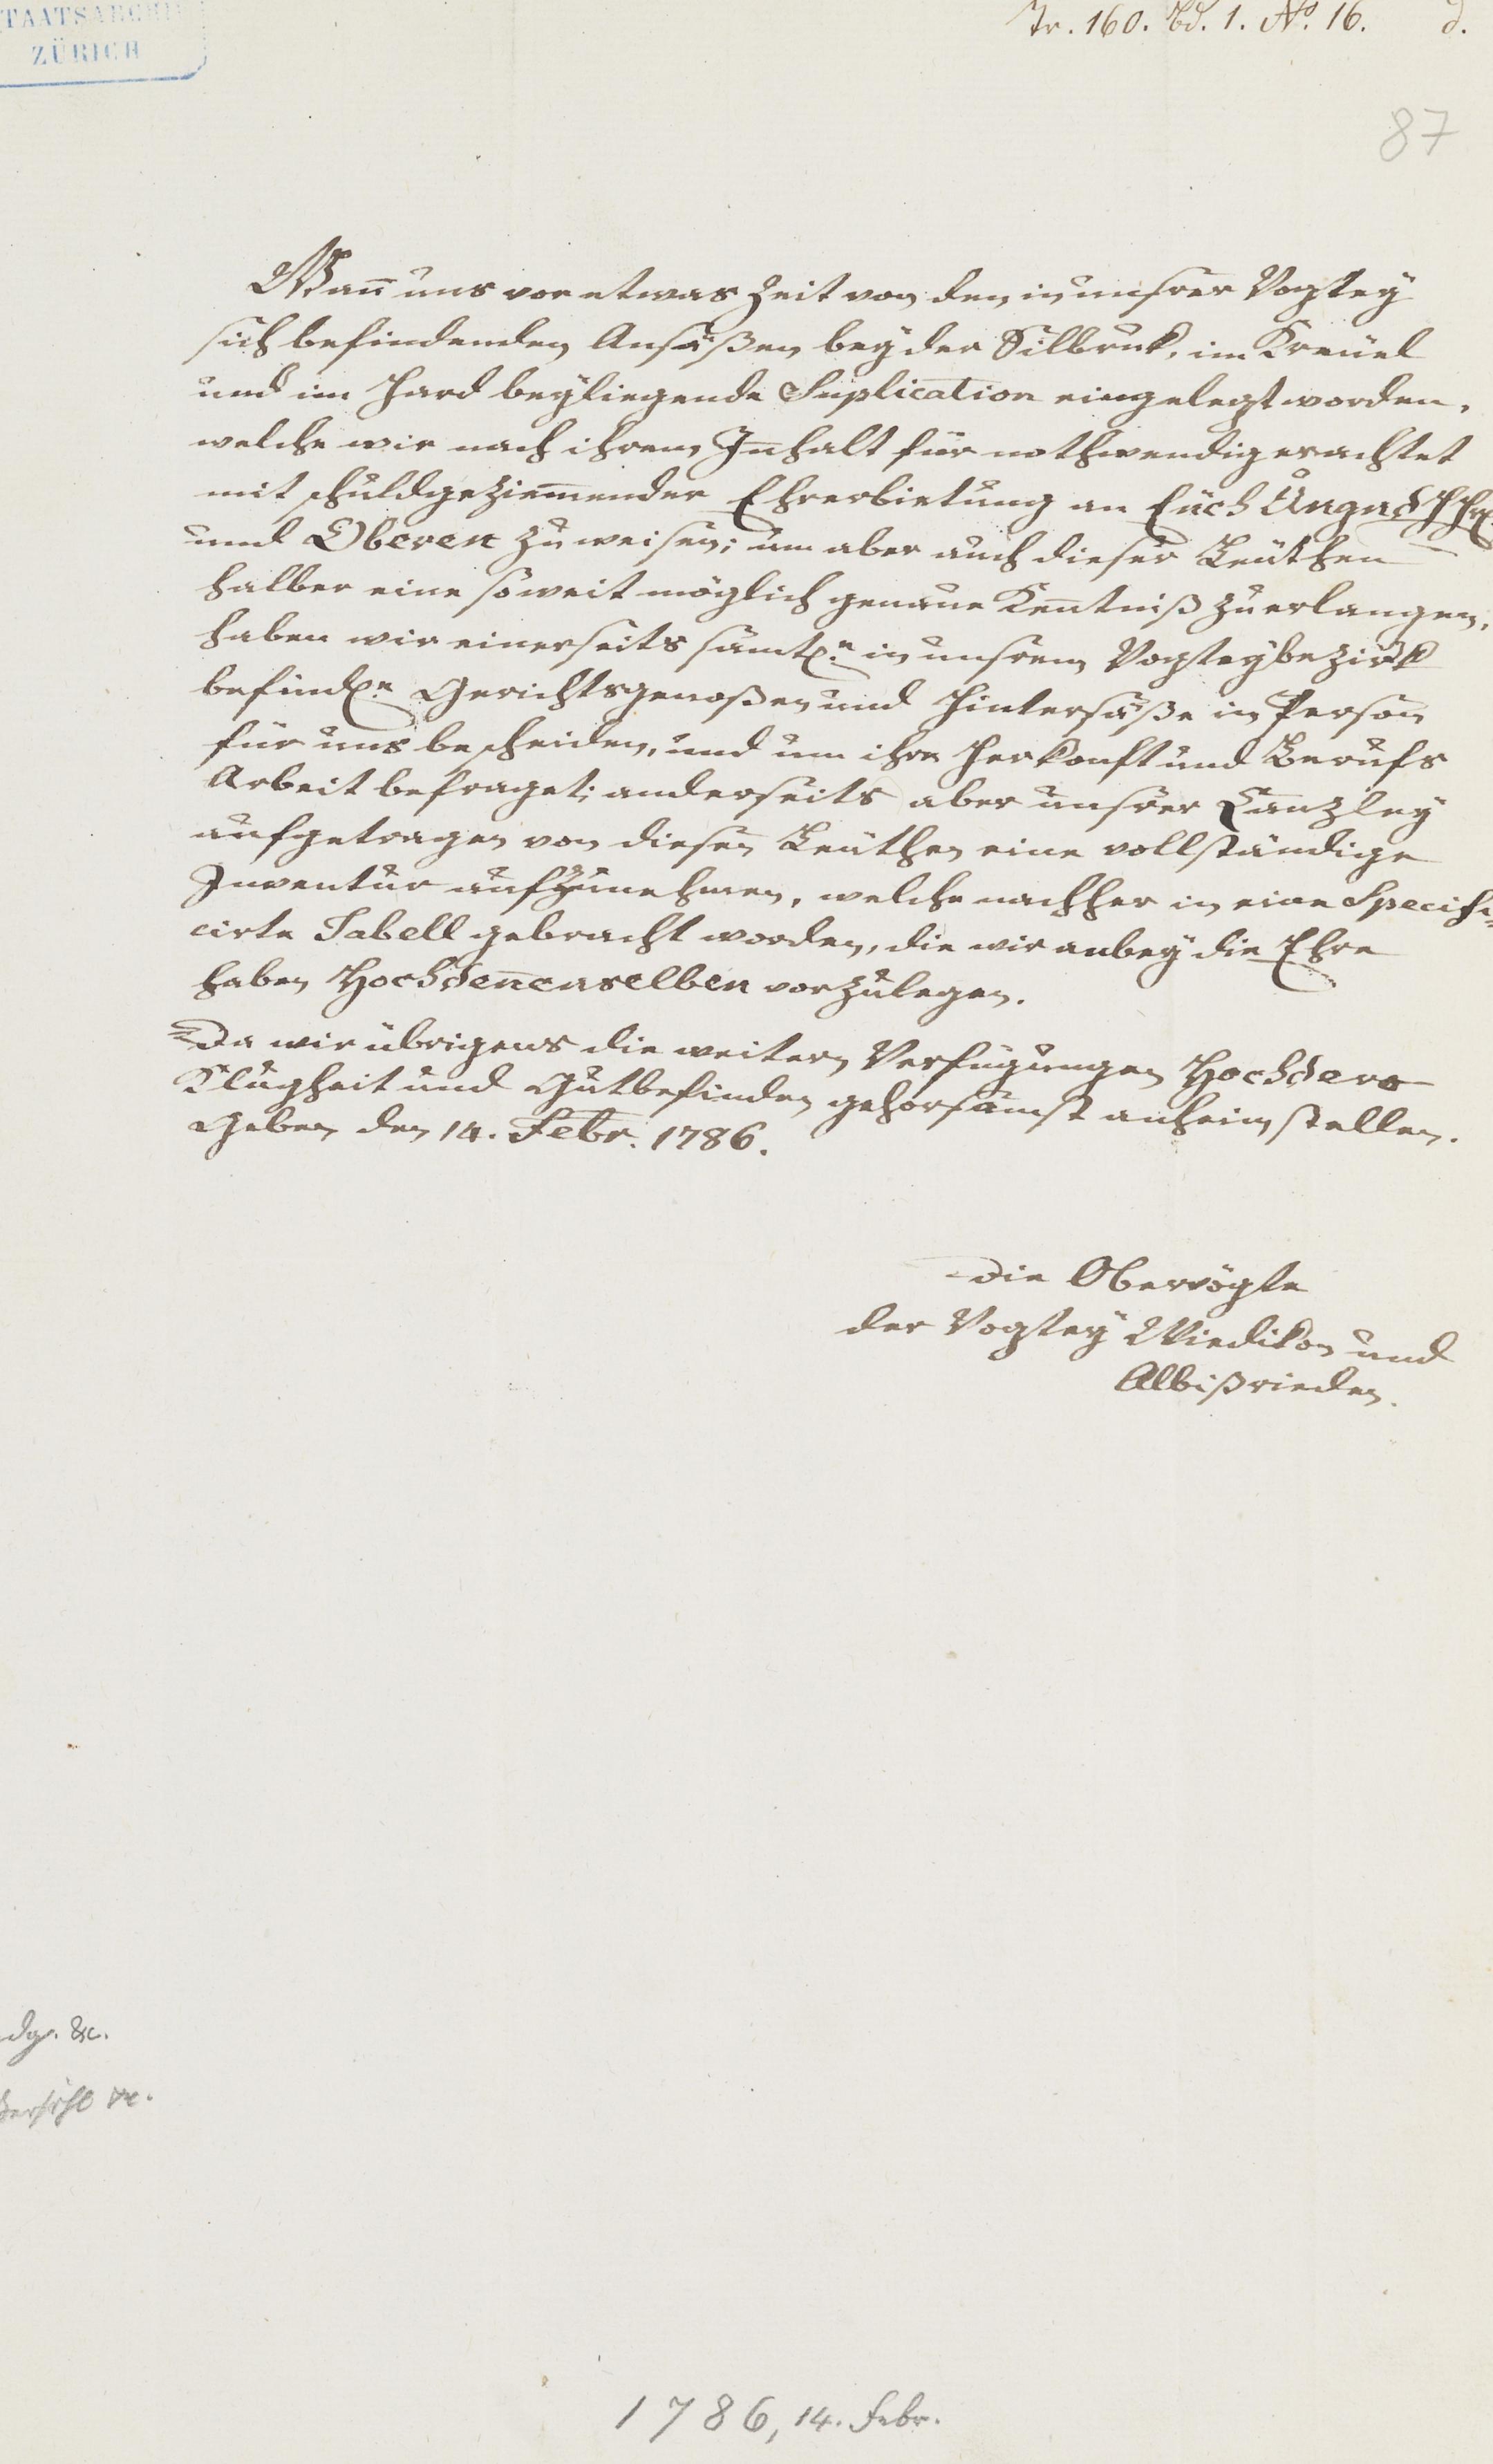 TAATSARCHI
ZÜRICH
Tr. 160. Bd. 1. No. 16. d.
87
Wan̄ uns vor etwas Zeit von den in unsrer Vogtey
sich befindenden Ansäßen bey der Silbruk, im Kreüel
und im Hard beyliegende Suplication eingelegt worden,
welche wir nach ihrem Jn̄halt für nothwendig erachtet
mit schuldgeziem̄ender Ehrerbietung an Eüch Ungnd HHr
und Oberen zu weisen; um aber auch dieser Leüthen
halber eine so weit möglich genaue Ken̄tniß zu erlangen,
haben wir einerseits sämtl.n in unsrem Vogteybezirk
befindl.n Gerichtsgenoßen und Hintersäße in Person
für uns bescheiden, und um ihre Herkonft und Berufs
Arbeit befraget; anderseits aber unsrer Canzley
aufgetragen von diesen Leüthen eine vollständige
Inventur aufzunehmen, welche nachher in eine Specifi-
cirte Tabell gebracht worden, die wir anbey die Ehre
haben Hochden̄enselben vorzulegen.
Da wir übrigens die weitern Verfügungen Hochdero
Klugheit und Gutbefinden gehorsamst anheim stellen.
Geben den 14. Febr. 1786.
Die Obervögte
der Vogtey Wiedikon und
Albißrieden.
dg. &c.
&c.
1786, 14. Febr.